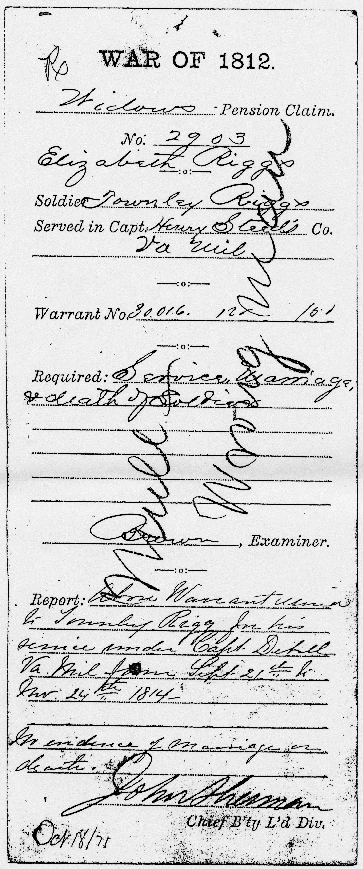 WAR OF 1812.
Widows Pension Claim.
No. 2903
Elizabeth Riggs
Soldier Townley Riggs
Served in Capt. Henry Co.
Va Mil
Warrant No 30,016. 12
Required: Service, Marriage,
& death of Soldier
Wrong number
Brown, Examiner.
Report: Above Warrant
to Townley Rigg for his
service under Capt
Va Mil from Sept 21st to
Nov 24th 1814
No evidence of marriage or
death.
John Shuman
Chief B'ty L'd Div.
Oct 18/71